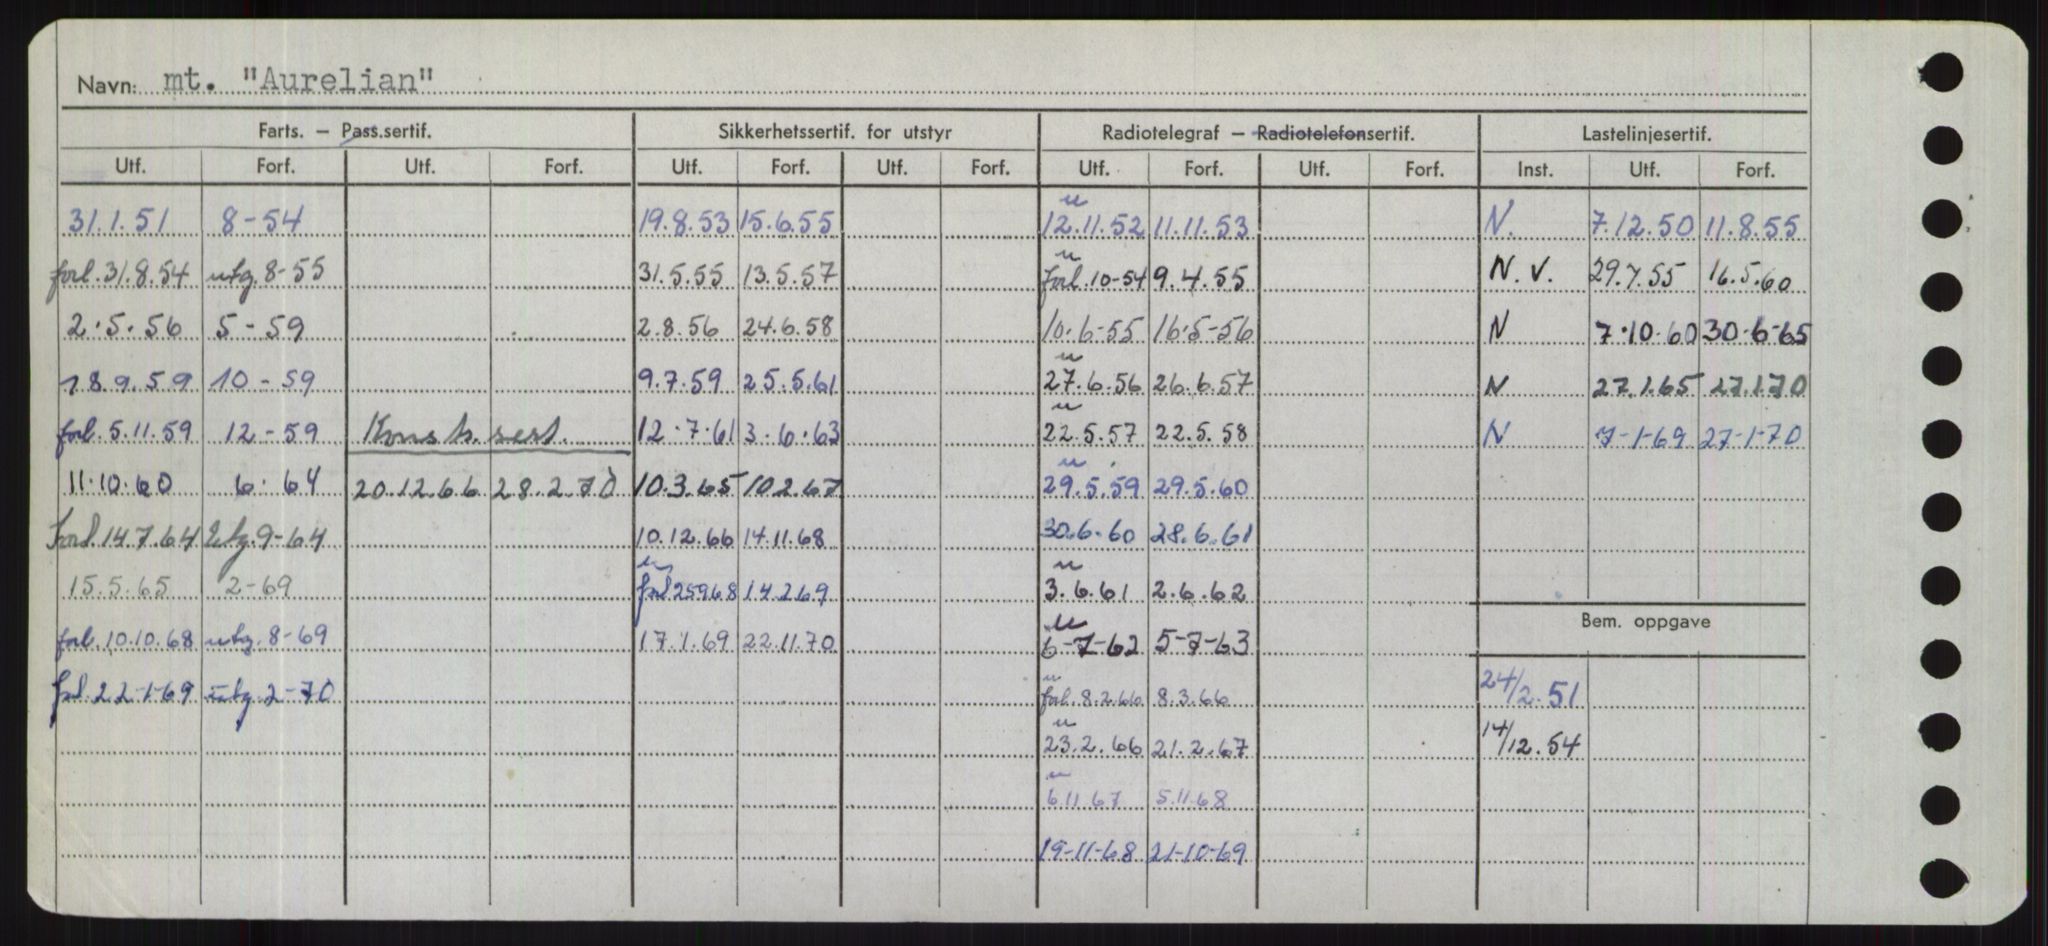 Navn: mt. "Aurelian"
Farts. – Pass.sertif. Sikkerhetssertif. for utstyr Radiotelegraf – Radiotelefonsertif. Lastelinjesertif.
Utf. Forf. Utf. Forf. Utf. Forf. Utf. Forf. Utf. Forf. Utf. Forf. Inst. Utf. Forf.
31.1.51 8-54 19.8.53 15.6.55 u 12.11.52 11.11.53 N. 7.12.50 11.8.55
forl. 31.8.54 utg. 8-55 31.5.55 13.5.57 u forl. 10-54 9.4.55 N.V. 29.7.55 16.5.60
2.5.56 5-59 2.8.56 24.6.58 10.6-55 16.5-56 N 7.10.60 30.6-65
18.9.59 10-59 9.7.59 25.5.61 u 27.6.56 26.6.57 N 27.1.65 27.1.70
forl. 5.11.59 12-59 Konstr. sert. 12.7.61 3.6.63 u 22.5.57 22.5.58 N 7-1-69 27-1-70
11.10.60 6.64 20.12.66 28.2.70 10.3.65 10.2.67 u 29.5.59 29.5.60
Forl. 14.7.64 Utg. 9-64 10.12.66 14.11.68 30.6.60 28.6.61
15.5.65 2-69 u forl 25968 14.2.69 u 3.6.61 2.6.62
Bem. oppgave
forl. 10.10.68 utg. 8-69 17.1.69 22.11.70 u 6-7-62 5-7-63
forl. 22-1-69 utg. 2-70 u forl. 8.2.66 8.3.66 24/2.51
u 23.2.66 21.2.67 14/12.54
u 6.11.67 5.11.68
19-11-68 21-10-69